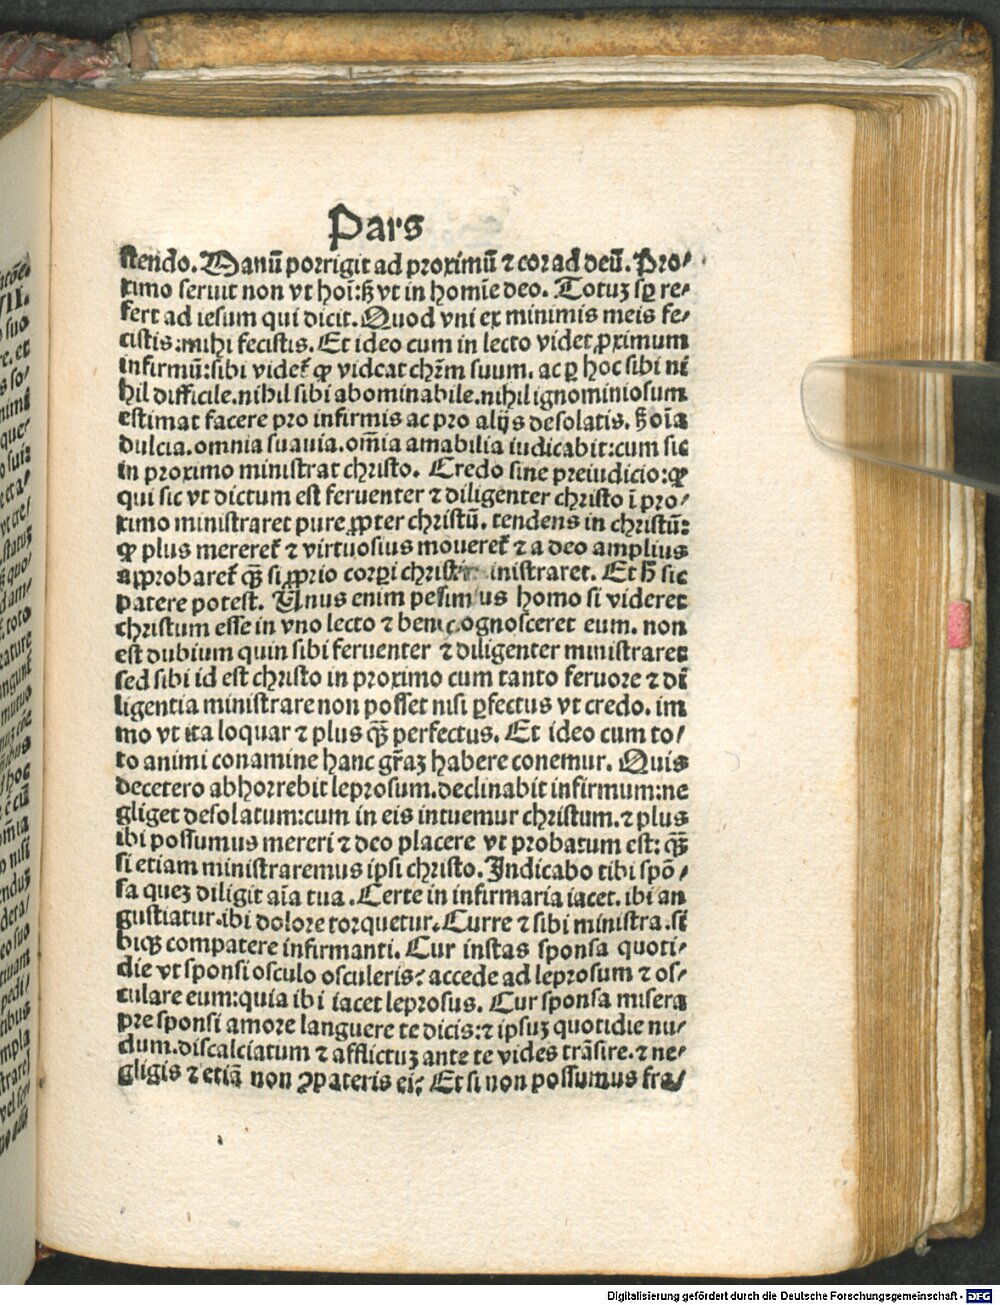 Pars
stendo. Manū porrigit ad proximū ⁊ cor ad deū. Pro⸗
ximo seruit non vt hoī: sꝫ vt in homīe deo. Totuꝫ sꝑ re⸗
fert ad iesum qui dicit. Quod vni ex minimis meis fe⸗
cistis: mihi fecistis. Et ideo cum in lecto videt ꝓximum
infirmū: sibi videt᷑ ꝙ videat chr̄m suum. ac ꝑ hoc sibi ni
hil difficile. nihil sibi abominabile. nihil ignominiosum
estimat facere pro infirmis ac pro alijs desolatis. sꝫ oīa
dulcia. omnia suauia. om̄ia amabilia iudicabit: cum sic
in proximo ministrat christo. Credo sine preiudicio: ꝙ
qui sic vt dictum est feruenter ⁊ diligenter christo ī pro⸗
ximo ministraret pure ꝓpter christū. tendens in christū:
ꝙ plus mereret᷑ ⁊ virtuosius moueret᷑ ⁊ a deo amplius
approbaret᷑ qꝫ̄ si ꝓprio corꝑi christi inistraret. Et hͦ sic
patere potest. Unus enim pessimus homo si videret
christum esse in vno lecto ⁊ bene cognosceret eum. non
est dubium quin sibi feruenter ⁊ diligenter ministraret
sed sibi id est christo in proximo cum tanto feruore ⁊ di
ligentia ministrare non posset nisi ꝑfectus vt credo. im
mo vt ita loquar ⁊ plus qꝫ̄ perfectus. Et ideo cum to⸗
to animi conamine hanc gr̄aꝫ habere conemur. Quis
decetero abhorrebit leprosum. declinabit infirmum: ne
gliget desolatum: cum in eis intuemur christum. ⁊ plus
ibi possumus mereri ⁊ deo placere vt probatum est: qꝫ̄
si etiam ministraremus ipsi christo. Indicabo tibi spō⸗
sa queꝫ diligit aīa tua. Certe in infirmaria iacet. ibi an
gustiatur. ibi dolore torquetur. Curre ⁊ sibi ministra. si
biqꝫ compatere infirmanti. Cur instas sponsa quoti⸗
die vt sponsi osculo osculeris? accede ad leprosum ⁊ os⸗
culare eum: quia ibi iacet leprosus. Cur sponsa misera
pre sponsi amore languere te dicis: ⁊ ipsuꝫ quotidie nu⸗
dum. discalciatum ⁊ afflictuꝫ ante te vides trāsire. ⁊ ne⸗
gligis ⁊ etiā non ꝯpateris ei? Et si non possumus fra⸗
Digitalisierung gefördert durch die Deutsche Forschungsgemeinschaft - DFG